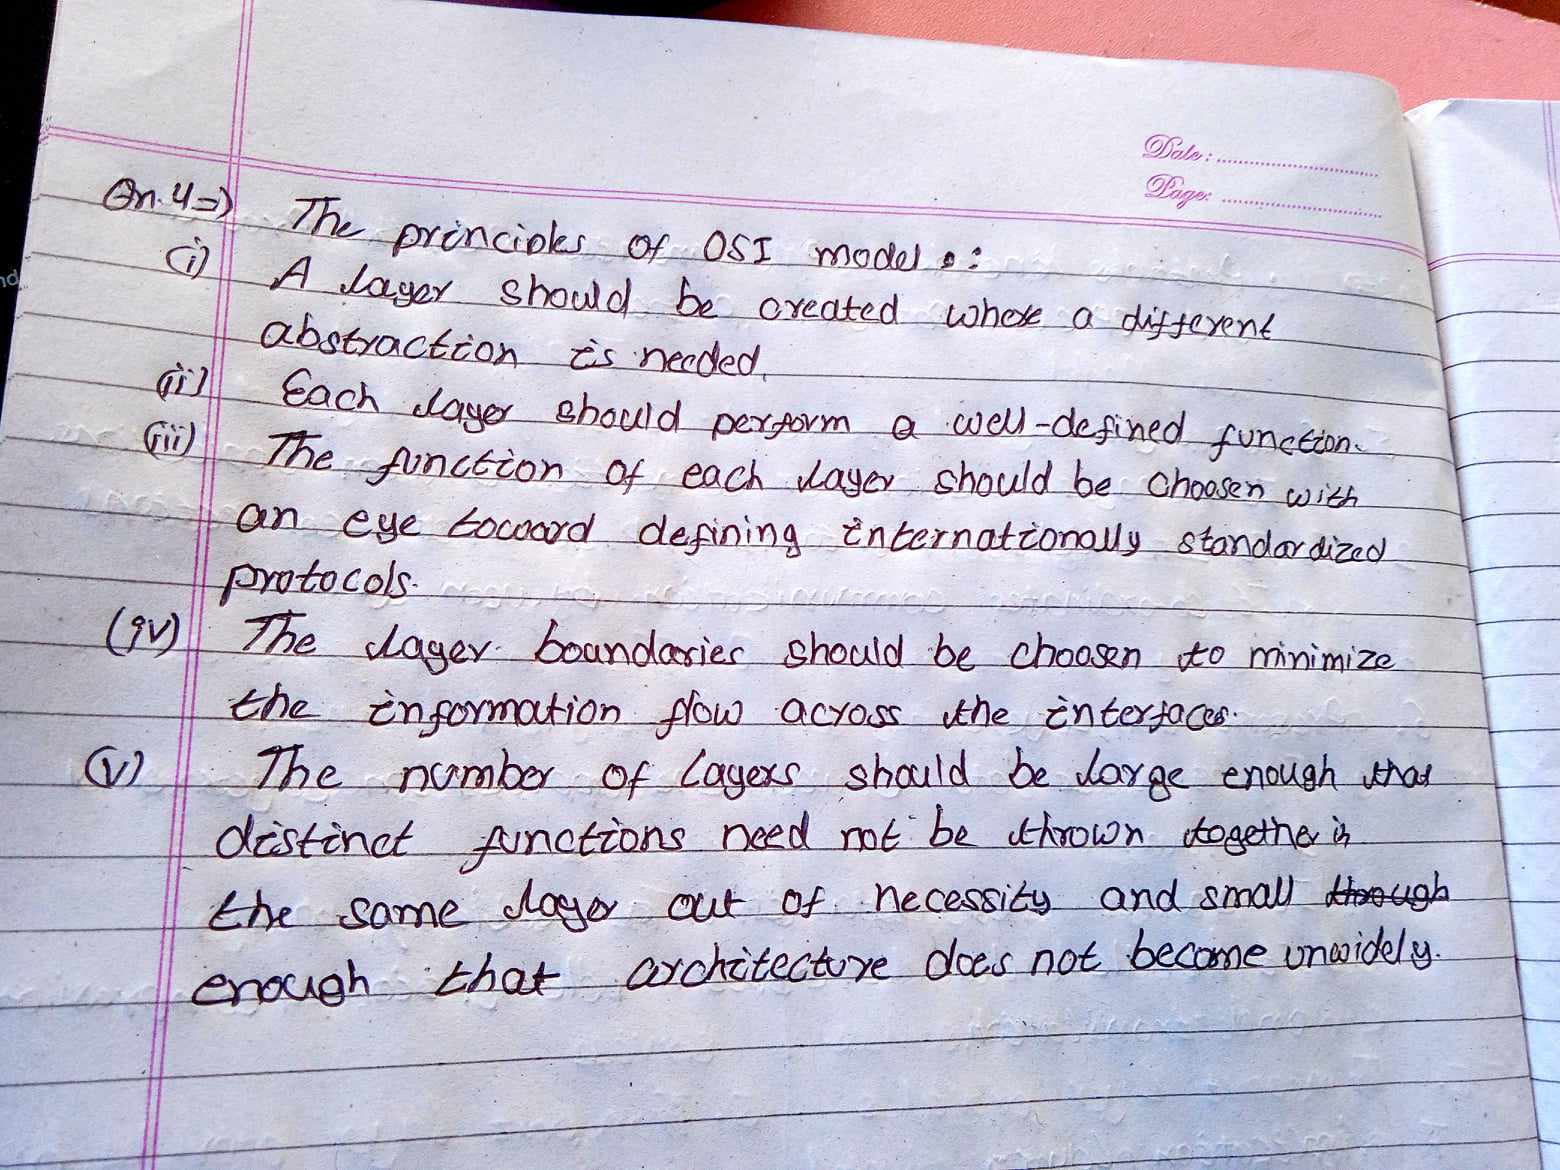 Date:
Page:
Qn.4=) The principles of OSI model:
(i) A layer should be created where a different
abstraction is needed.
(ii) Each layer should perform a well-defined function.
(iii) The function of each layer should be choosen with
an eye toward defining internationally standardized
protocols.
(iv) The layer boundaries should be choosen to minimize
the information flow across the interfaces.
(v) The number of layers should be large enough that
distinct functions need not be thrown together in
the same layer out of necessity and small though
enough that architecture does not become unwidely.